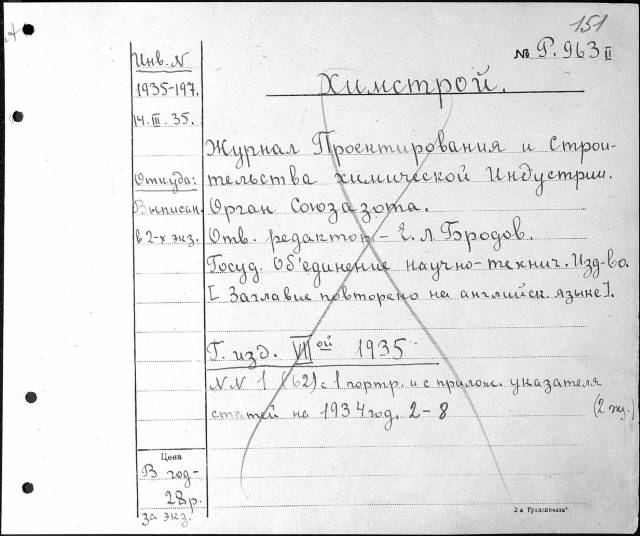 151
№ Р. 963 II
Химстрой.
Инв. N
1935-197.
14. III. 35.
Откуда:
Выписан.
в 2-х экз.
Журнал Проектирования и Строи-
тельства химической Индустрии.
Орган Союзазота.
Отв. редактор - Е. Л Бродов.
Госуд. Об'единение научно-технич. Изд-во.
[ Заглавие повторено на английск. языке].
Г. изд. VII ой 1935
NN 1 (62) с 1 портр. и с прилож. указателя
статей на 1934 год. 2-8
(2 экз.)
Цена
В год-
28 р.
за экз.